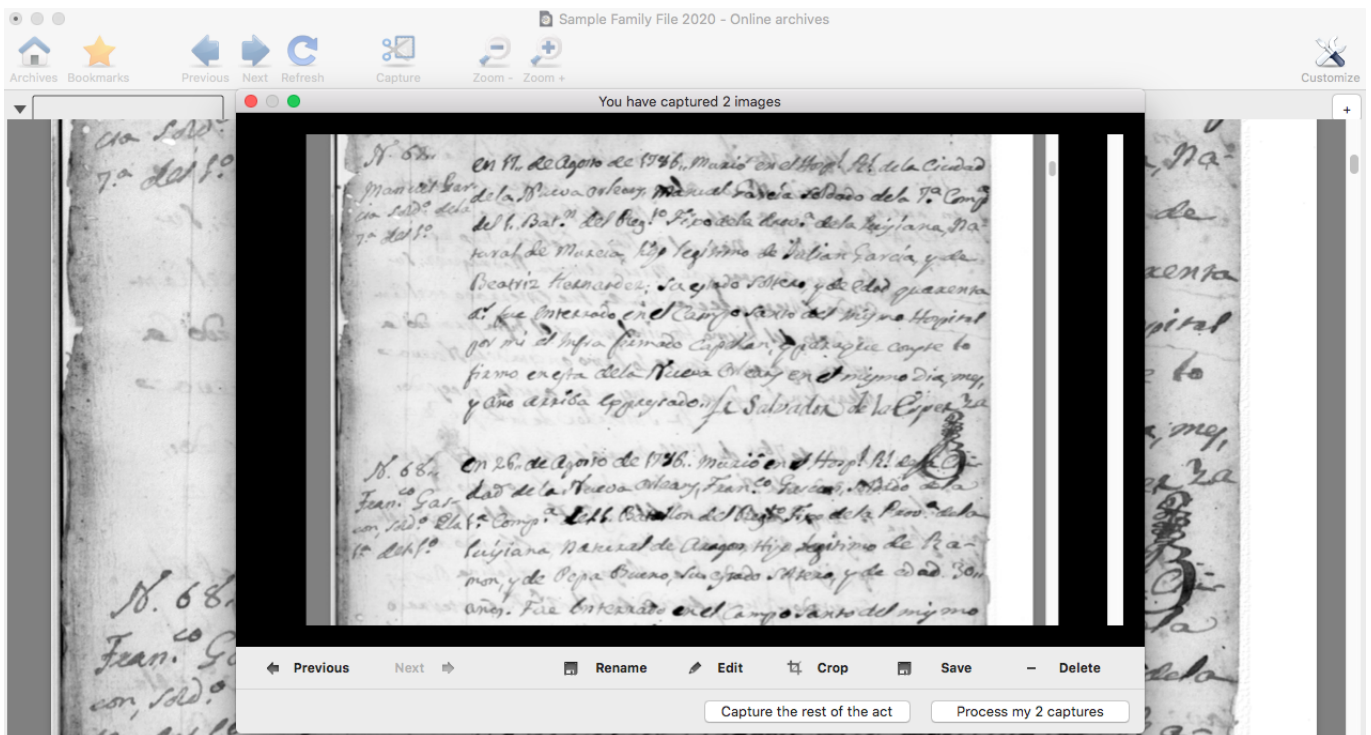 Sample Family File 2020 - Online archives
Archives Bookmarks Previous Next Refresh Capture Zoom - Zoom + Customize
You have captured 2 images
+
cia Sold.º
7.ª del 1.º
N. 68.
Fran.co Gar
con, sold.º
N. 67.
Manuel Gar-
cia Sold.º dela
7.ª del 1.º
en 17. de Agosto de 1786. Murió en el Hosp.l R.l dela Ciudad
dela Nueva Orleans, Manuel Garcia Soldado dela 7.ª Comp.ª
del 1. Bat.n del Reg.to Fixo dela Prov.ª dela Luisiana, Na-
tural de Murcia, Hijo legitimo de Julian Garcia, y de
Beatriz Hernandez; Su estado Soltero, y de edad quarenta
a.s fue Enterrado en el Campo Santo del mismo Hospital
por mi el Infra firmado Capellan, y paraque conste lo
firmo en esta dela Nueva Orleans en el mismo dia, mes,
y Año arriba expresado. Fr. Salvador de la Esper.za
N. 68.
Fran.co Gar-
con, Sold.º dla
1.ª del 1.º
en 26. de Agosto de 1786. murió en el Hosp.l R.l dela Ciu-
dad dela Nueva Orleans, Fran.co Garcon, Soldado dela
1.ª Comp.ª del 1. Batallon del Reg.to Fixo dela Prov.ª dela
Luisiana, Natural de Aragon, Hijo legitimo de Ra-
mon, y de Pepa Bueno, Su estado Soltero, y de edad 30.
años. Fue Enterrado en el Campo Santo del mismo
Na-
de
arenta
pital
lo
mes,
za
dela
Previous Next Rename Edit Crop Save Delete
Capture the rest of the act Process my 2 captures